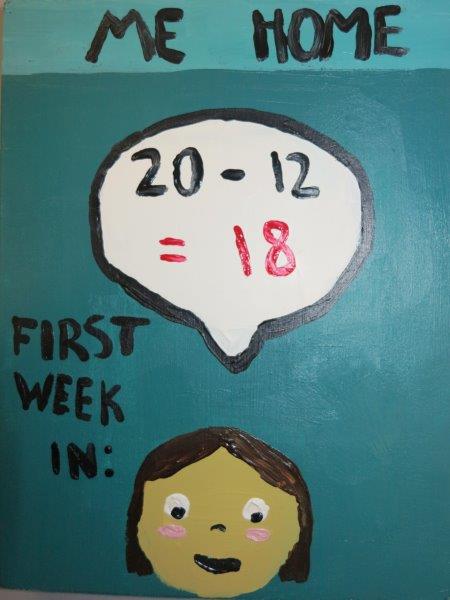 ME HOME
20 - 12
= 18
FIRST
WEEK
IN: